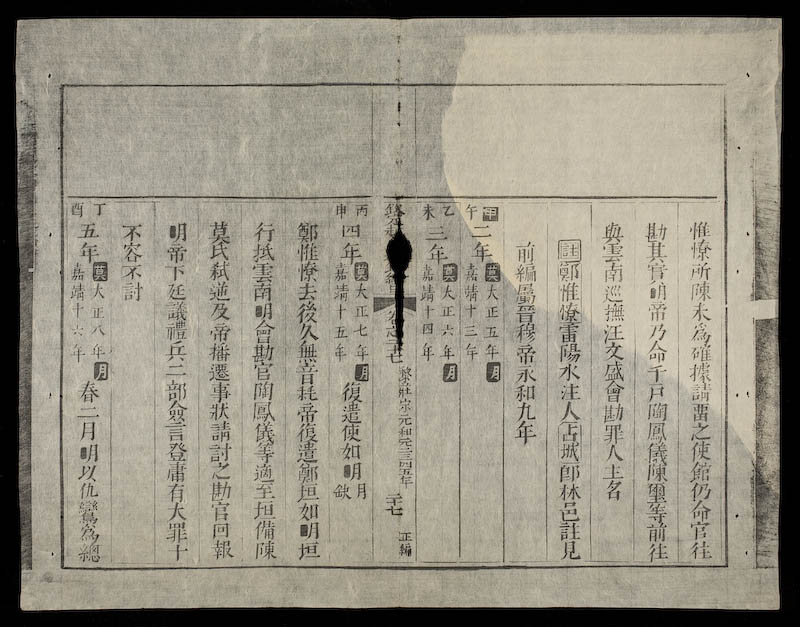 惟憭所陳未為確據請畱之使館仍命官往
勘其實明帝乃命千戸陶鳳儀陳璽等前往
與雲南巡撫汪文盛會勘罪人主名
註鄭惟憭雷陽水注人占城卽林邑註見
前編屬晉穆帝永和九年
甲午二年莫大正五年明嘉靖十三年
乙未三年莫大正六年明嘉靖十四年
卷之二十七 黎莊宗元和元二三四五年 二十七 正編
丙申四年莫大正七年明嘉靖十五年復遣使如明月缺
鄭惟憭去後久無音耗帝復遣鄭垣如明垣
行抵雲南明會勘官陶鳳儀等適至垣備陳
莫氏弒逆及帝播遷事狀請討之勘官回報
明帝下廷議禮兵二部僉言登庸有大罪十
不容不討
丁酉五年莫大正八年明嘉靖十六年春二月明以仇鸞為總